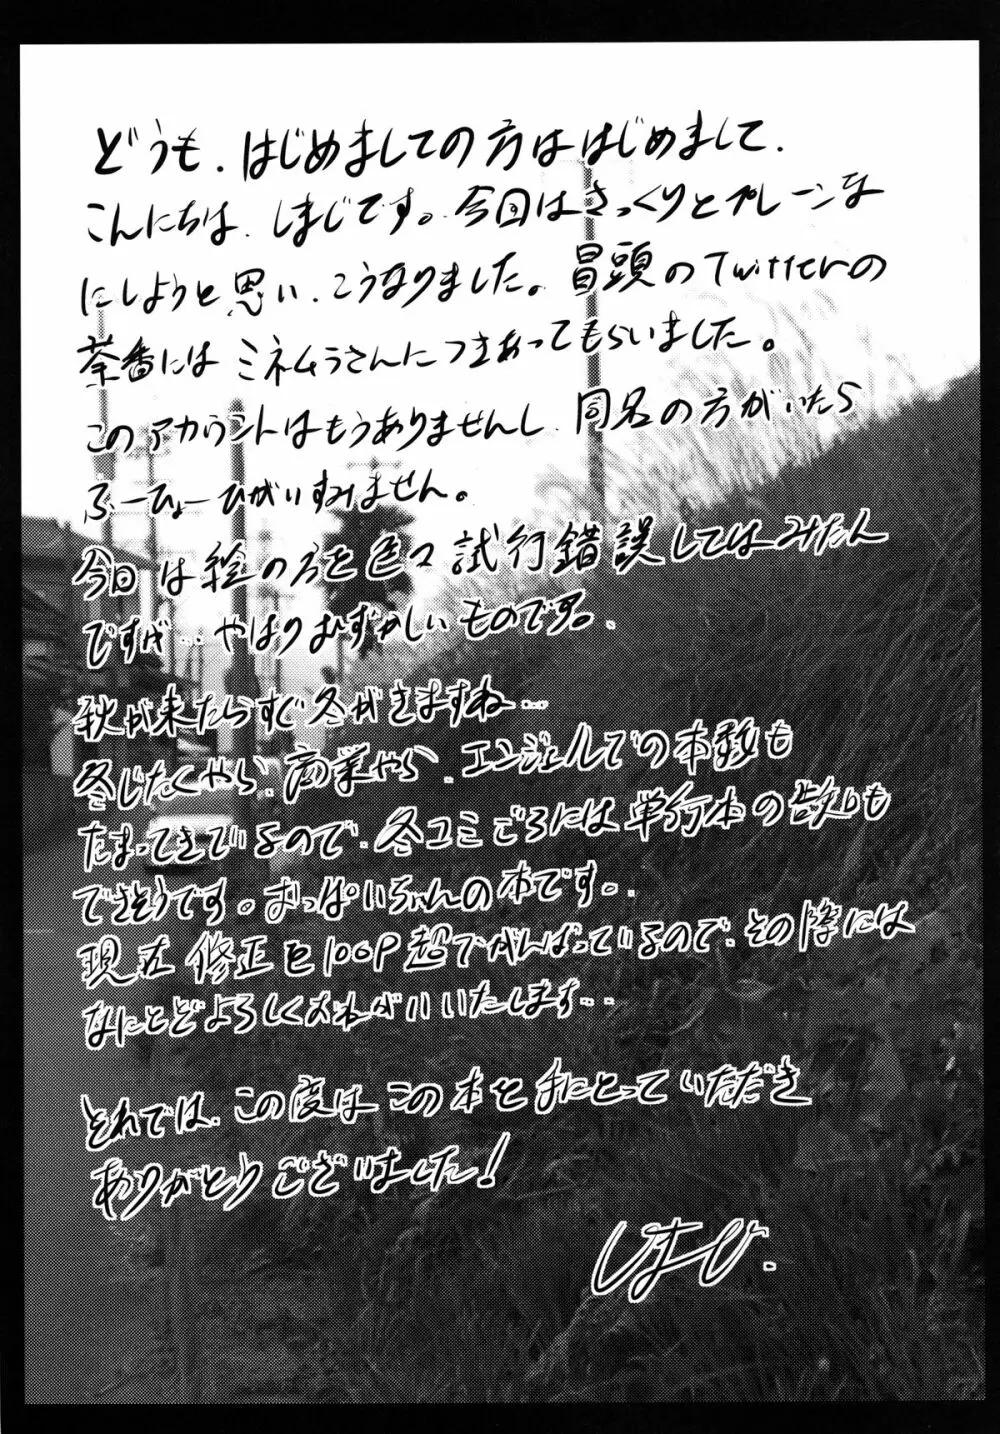 どうも、はじめましての方ははじめまして、
こんにちは、しまじです。今回はさっくりとプレーンな
にしようと思い、こうなりました。冒頭のTwitterの
茶番にはミネムラさんにつきあってもらいました。
このアカウントはもうありませんし、同名の方がいたら
ふーひょーひがいすみません。
今回は絵の方を色々試行錯誤してはみたん
ですが…やはりむずかしいものです。
秋が来たらすぐ冬がきますね…
冬じたくやら、商業やら、エンジェルでの本数も
たまってきているので、冬コミごろには単行本の話も
できそうです。おっぱいちゃんの本です。
現在修正を100P超でがんばっているので、その際には
なにとどよろしくおねがいいたします…
それでは、この度はこの本を手にとっていただき
ありがとうございました!